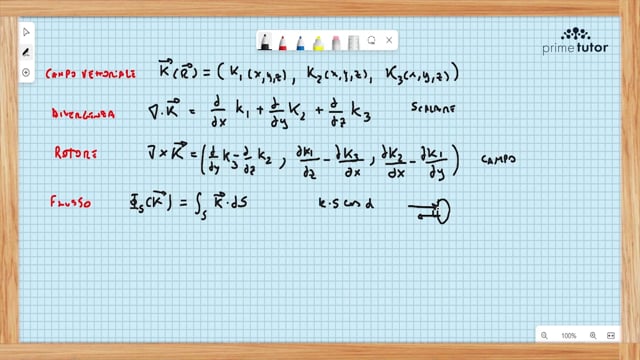 primetutor
CAMPO VETTORIALE K⃗(R⃗) = ( K₁(x,y,z), K₂(x,y,z), K₃(x,y,z) )
DIVERGENZA ∇·K⃗ = ∂/∂x k₁ + ∂/∂y K₂ + ∂/∂z k₃ SCALARE
ROTORE ∇×K⃗ = ( ∂/∂y k₃ - ∂/∂z k₂ , ∂k₁/∂z - ∂k₃/∂x , ∂k₂/∂x - ∂k₁/∂y ) CAMPO
FLUSSO Φₛ(K⃗) = ∫ₛ K⃗·dS k·S cos α
100%